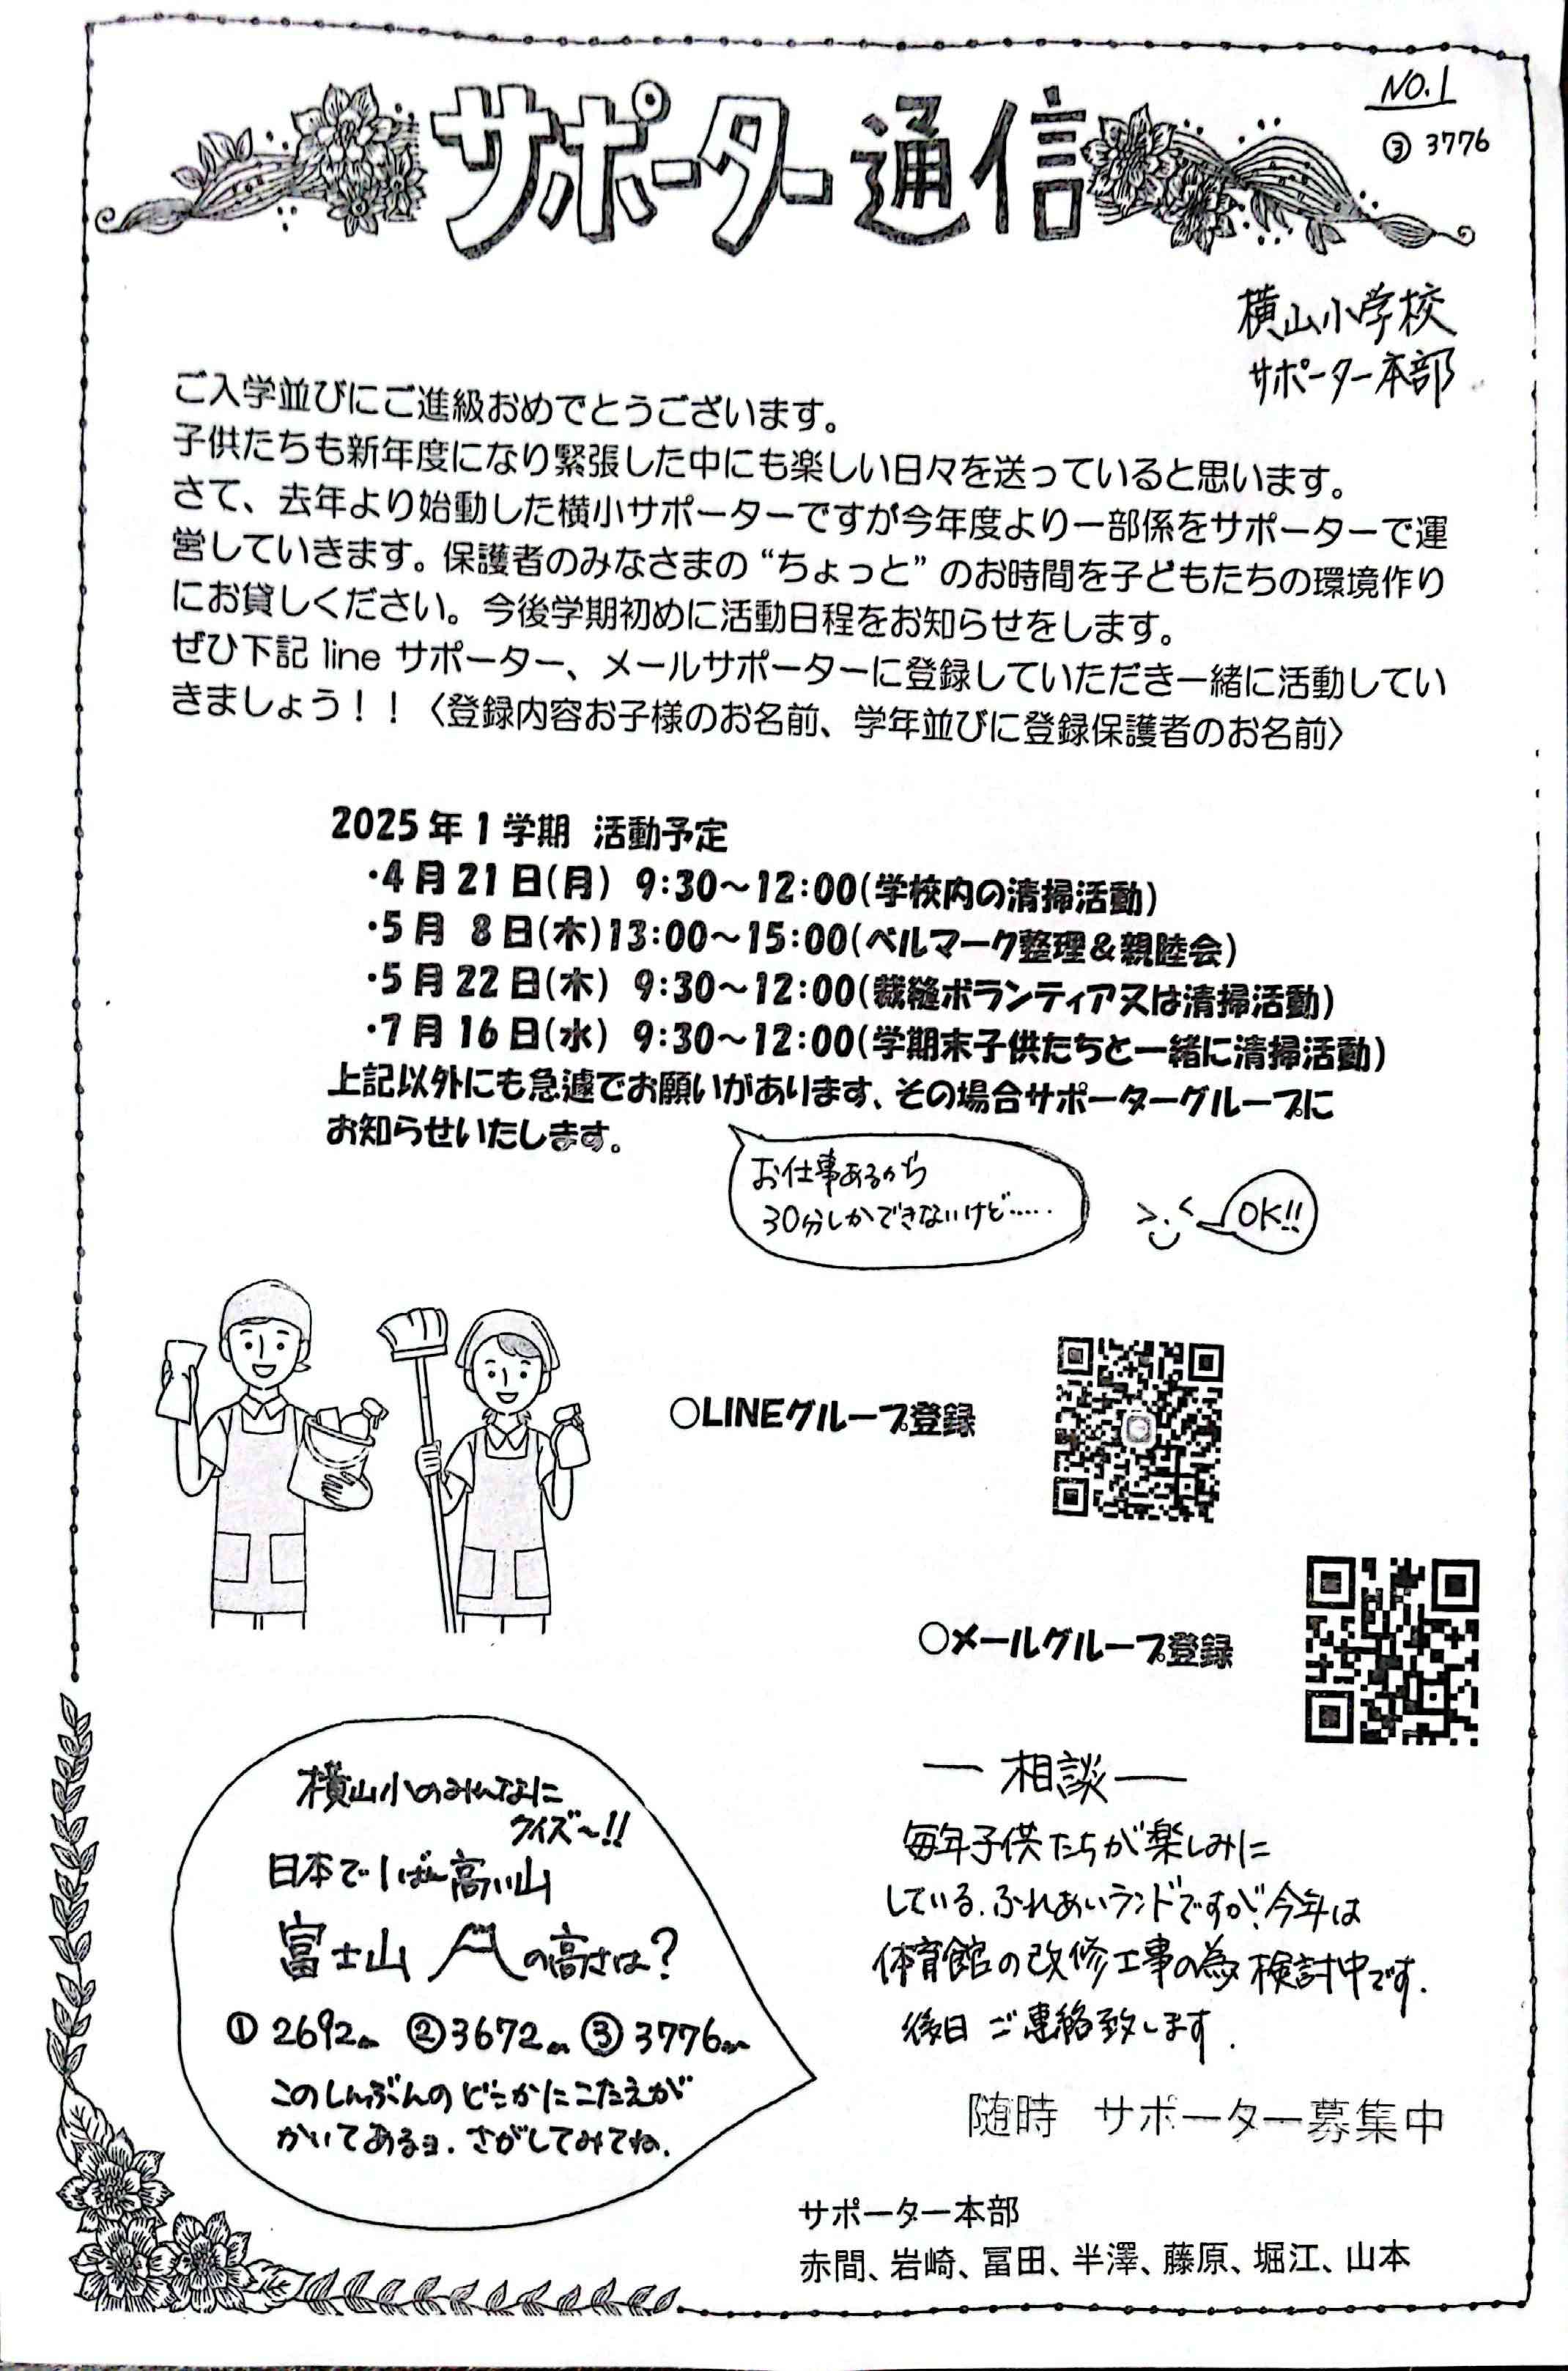 NO.1
③ 3776
サポーター通信
横山小学校
サポーター本部
ご入学並びにご進級おめでとうございます。
子供たちも新年度になり緊張した中にも楽しい日々を送っていると思います。
さて、去年より始動した横小サポーターですが今年度より一部係をサポーターで運
営していきます。保護者のみなさまの“ちょっと”のお時間を子どもたちの環境作り
にお貸しください。今後学期初めに活動日程をお知らせをします。
ぜひ下記 line サポーター、メールサポーターに登録していただき一緒に活動してい
きましょう！！〈登録内容お子様のお名前、学年並びに登録保護者のお名前〉
2025年1学期 活動予定
・4月21日(月) 9:30～12:00(学校内の清掃活動)
・5月 8日(木)13:00～15:00(ベルマーク整理＆親睦会)
・5月22日(木) 9:30～12:00(裁縫ボランティア又は清掃活動)
・7月16日(水) 9:30～12:00(学期末子供たちと一緒に清掃活動)
上記以外にも急遽でお願いがあります、その場合サポーターグループに
お知らせいたします。
お仕事あるから
30分しかできないけど‥‥‥
OK!!
○LINEグループ登録
○メールグループ登録
横山小のみんなに
クイズ～!!
日本で1ばん高い山
富士山の高さは?
① 2692m ②3672m ③3776m
このしんぶんのどこかにこたえが
かいてあるヨ.さがしてみてね.
― 相談 ―
毎年子供たちが楽しみに
している.ふれあいランドですが、今年は
体育館の改修工事の為 検討中です.
後日 ご連絡致します.
随時 サポーター募集中
サポーター本部
赤間、岩崎、冨田、半澤、藤原、堀江、山本